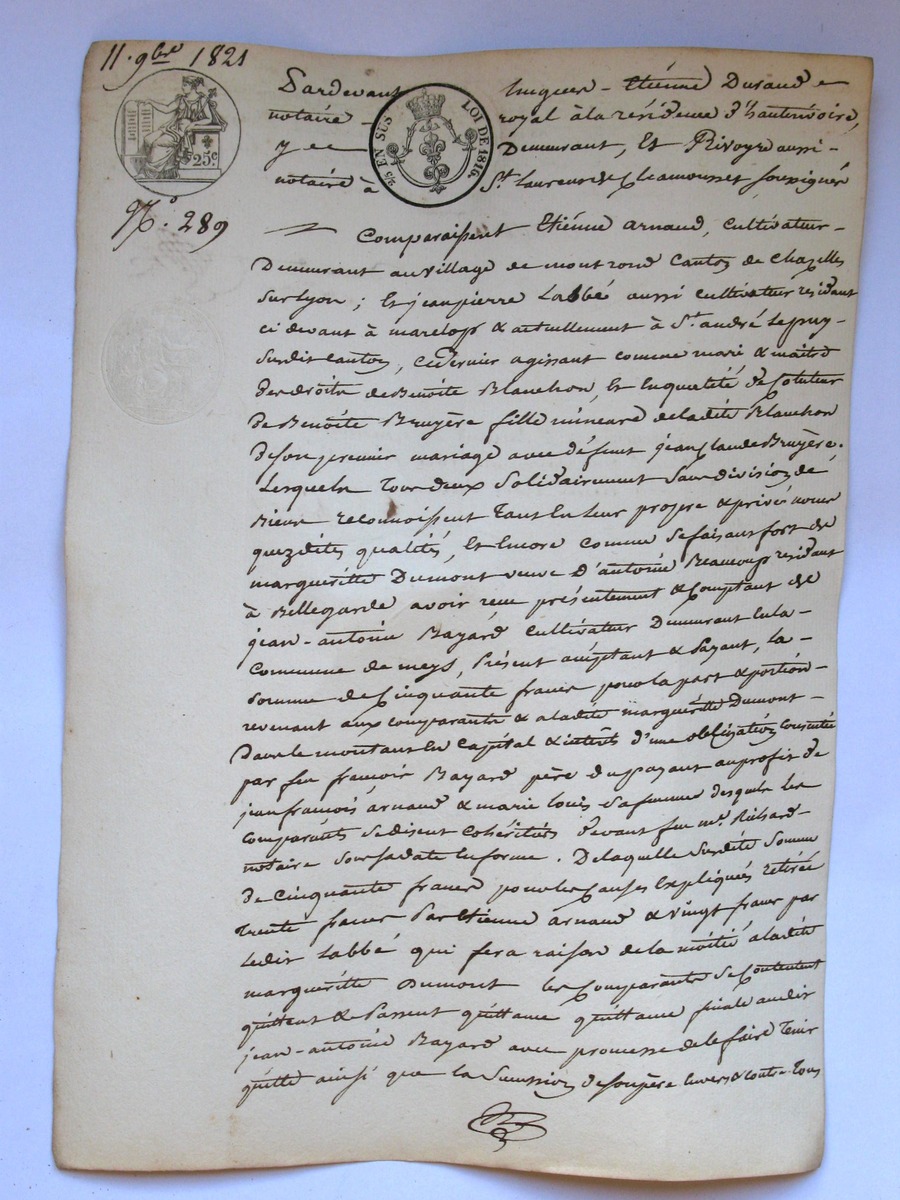 11. 9bre 1821
25c
2/5 EN SUS LOI DE 1816.
Pardevant hugues - Etiénne Durand
notaire - royal à la résidence d'hauterivoire,
y Demeurant, Et Rivoyre aussi -
notaire à St Laurent de Chamousset soussignés
No. 289
Comparaissent Etiénne arnaud, Cultivateur -
Demeurant au village de montrond Canton de Chazelles
Sur Lyon ; Et jean pierre Labbé aussi cultivateur résidant
ci devant à marclop & actuellement à St. andré le puy -
Susdit canton, ce dernier agissant comme mari & maître
des droits de Benoîte Blanchon, Et En qualité de Cotuteur
De Benoîte Bruyère fille mineure de ladite Blanchon
De son premier mariage avec défunt jean Claude Bruyère.
Lesquels Tous deux Solidairement Sans division de
Biens reconnoissent Tant En Leur propre & privé nom
qu'ezdites qualités, Et Encore comme Se faisans fort de
marguéritte Dumont veuve D'antoine Beaucoup résidant
à Bellegarde avoir reçu présentement & Comptant de
jean-antoine Bayard Cultivateur Demeurant En la -
Commune de meys, Présent acceptant & Payant, la -
Somme de Cinquante francs pour la part & portion -
revenant aux comparants & à ladite marguéritte Dumont -
Dans le montant En Capital & intérêts d'une obligation Consentie
par feu françois Bayard père du payant au profit de
jean françois arnaud & marie louis Sa femme desquels les
comparants Se disent Cohéritiers Devant feu me. Richard -
notaire Sous Sa date En forme. De laquelle Susdite Somme
De Cinquante francs pour les Causes Expliquées retirée
Trente francs Par Etienne arnaud & vingt francs par
Ledit Labbé qui fera raison de la moitié à ladite
marguéritte Dumont les Comparants Se Contentent
quittent & Passent quittance quittance finale audit
jean-antoine Bayard avec promesse de le faire Tenir
quitte ainsi que la Succession de son père Envers & contre Tous